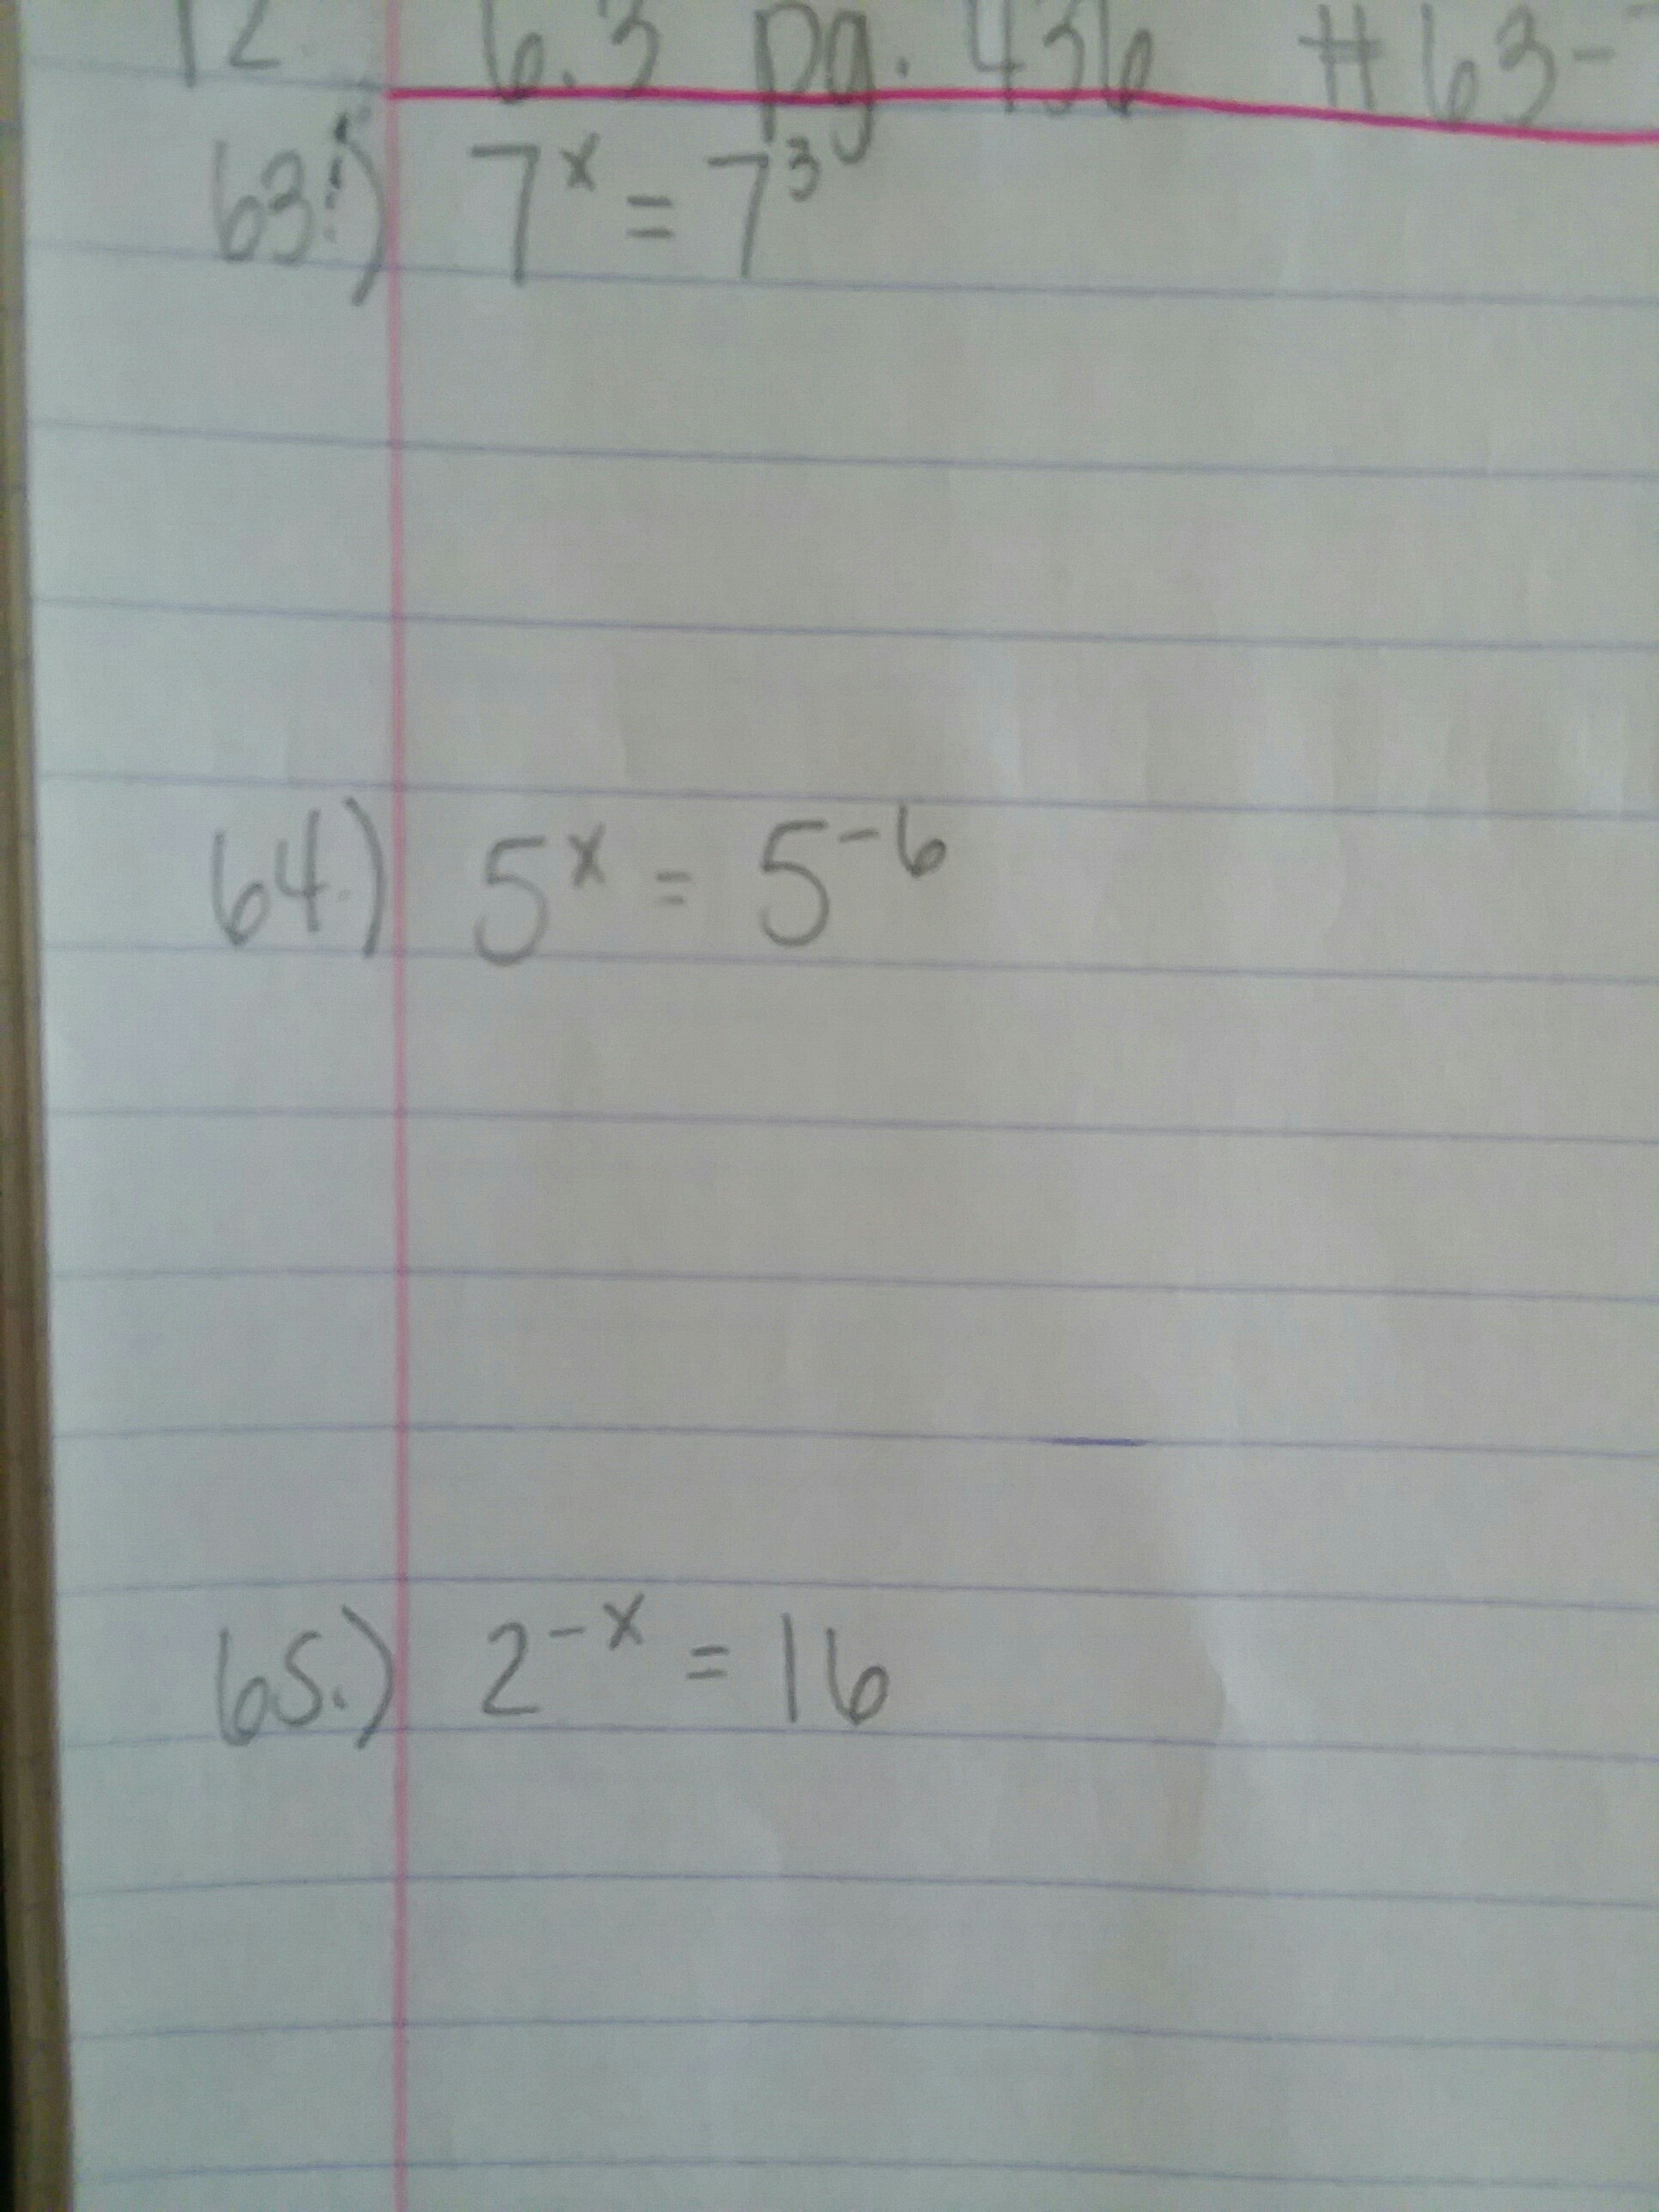 12 6.3 pg. 436 #63-
63.) 7^x = 7^3
64.) 5^x = 5^-6
65.) 2^-x = 16